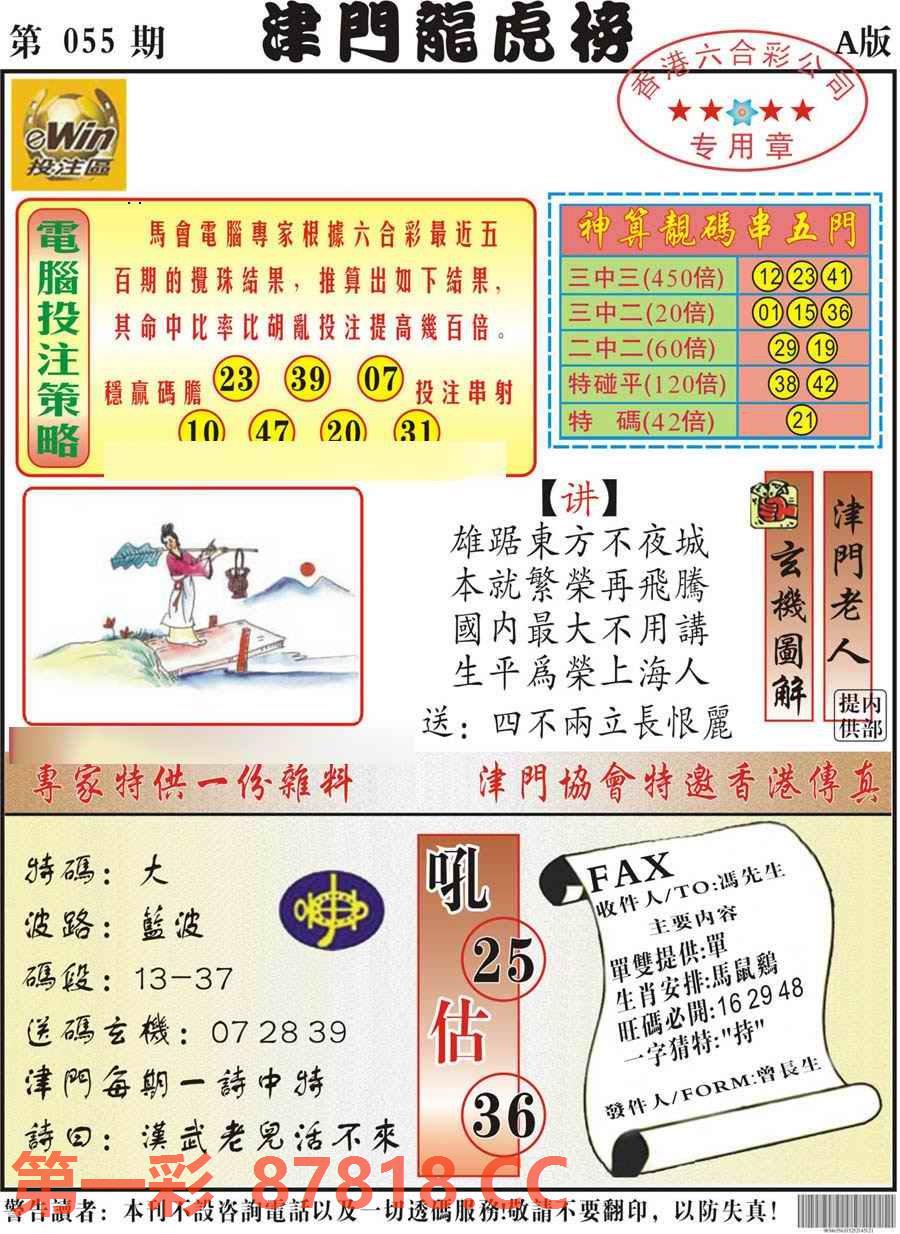 第 055 期
津門龍虎榜
A版
香港六合彩公司
专用章
eWin
投注區
電腦投注策略
馬會電腦專家根據六合彩最近五
百期的攪珠結果，推算出如下結果，
其命中比率比胡亂投注提高幾百倍。
穩贏碼膽 23 39 07 投注串射
10 47 20 31
神算靚碼串五門
三中三(450倍) 12 23 41
三中二(20倍) 01 15 36
二中二(60倍) 29 19
特碰平(120倍) 38 42
特 碼(42倍) 21
【讲】
雄踞東方不夜城
本就繁榮再飛騰
國内最大不用講
生平爲榮上海人
送：四不兩立長恨麗
玄機圖解
津門老人
内部提供
專家特供一份雜料
津門協會特邀香港傳真
特碼：大
波路：藍波
碼段：13-37
送碼玄機：07 28 39
津門每期一詩中特
詩曰：漢武老兒活不來
吼
25
估
36
FAX
收件人/TO:馮先生
主要内容
單雙提供:單
生肖安排:馬鼠鷄
旺碼必開:16 29 48
一字猜特:"持"
發件人/FORM:曾長生
第一彩 87818.CC
警告讀者：本刊不設咨詢電話以及一切透碼服務!敬請不要翻印，以防失真!